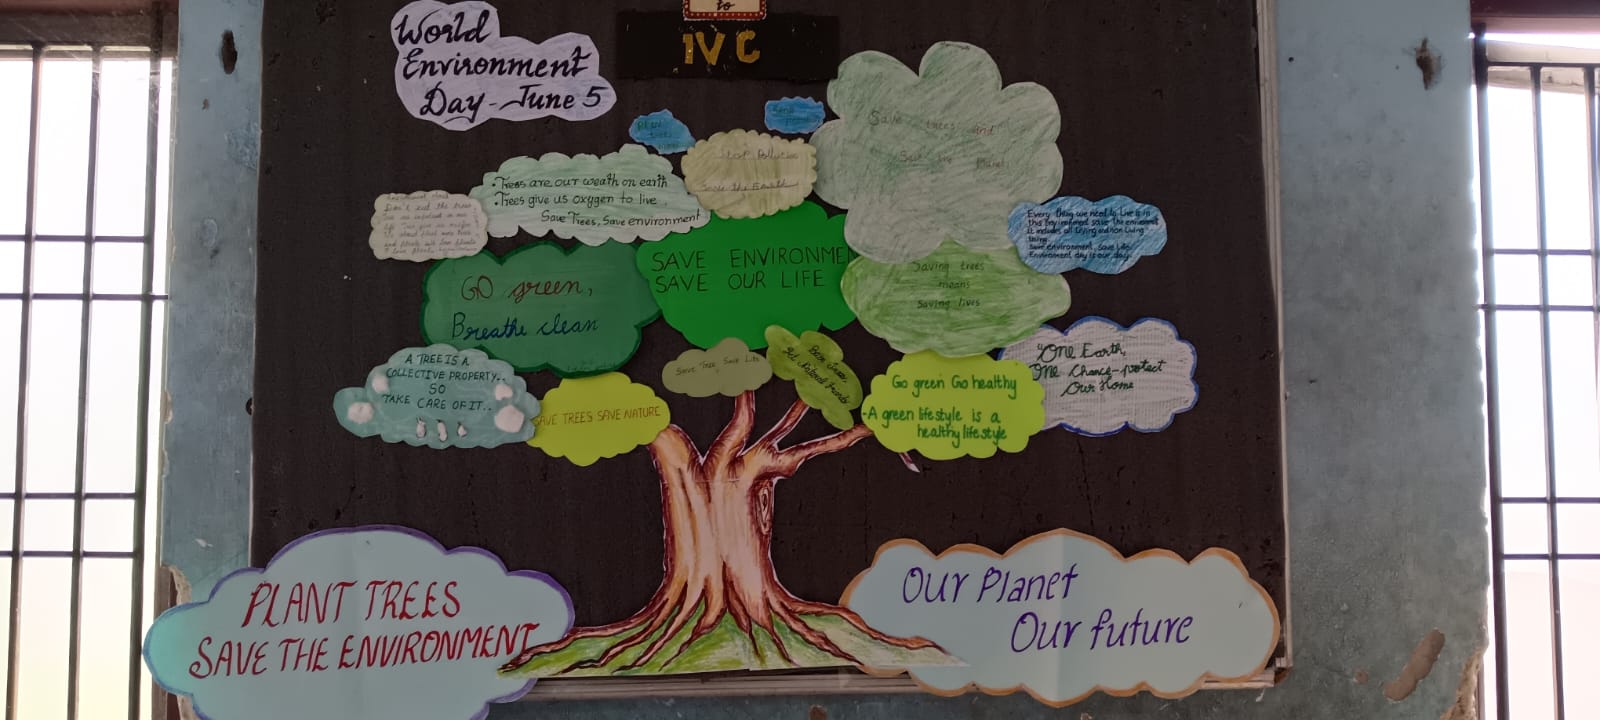 to
IV C
World
Environment
Day - June 5
Save trees and
Save the Planet
Stop Pollution
Save the Earth
• Trees are our weath on earth
• Trees give us oxygen to live
Save Trees, Save environment
Don't cut the trees
Every thing we need to live is in
this environment save the environment
It includes all living and non living
thing.
Save environment, Save Life
Environment day is our day.
GO green,
Breathe clean
SAVE ENVIRONMEN
SAVE OUR LIFE
Saving trees
means
Saving lives
A TREE IS A
COLLECTIVE PROPERTY..
SO
TAKE CARE OF IT..
SAVE TREES SAVE NATURE
Save Tree Save Life
Go green Go healthy
-A green lifestyle is a
healthy lifestyle
"One Earth,
One Chance-protect
Our Home
PLANT TREES
SAVE THE ENVIRONMENT
Our Planet
Our future